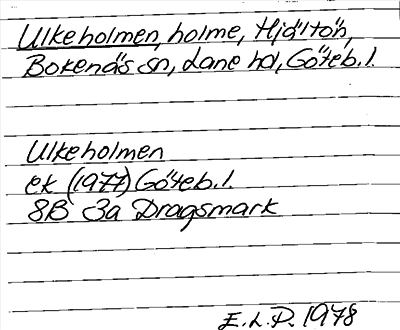 Ulkeholmen, holme, Hjältön,
Bokenäs sn, Lane hd, Göteb. l.
Ulkeholmen
ek (1977) Göteb. l.
8B 3a Dragsmark
E.L.P. 1978